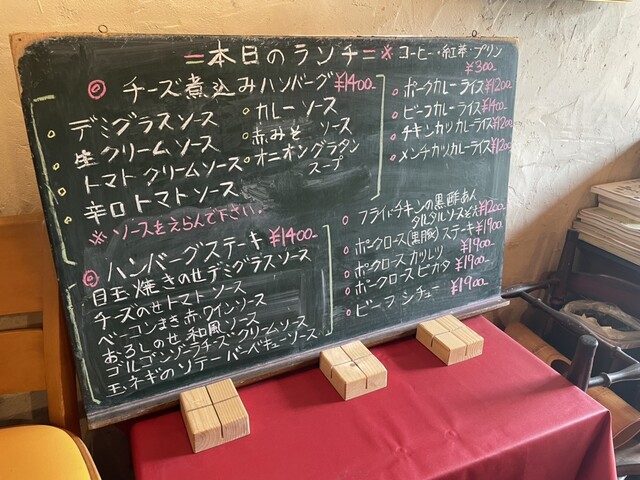 =本日のランチ=
※コーヒー・紅茶・プリン
¥300-
◎ チーズ煮込みハンバーグ ¥1400-
デミグラスソース
生クリームソース
トマトクリームソース
辛口トマトソース
カレーソース
赤みそソース
オニオングラタン
スープ
※ソースをえらんで下さい.
◎ ハンバーグステーキ ¥1400-
目玉焼きのせデミグラスソース
チーズのせトマトソース
ベーコンまき赤ワインソース
おろしのせ和風ソース
ゴルゴンゾーラチーズ・クリームソース
玉ネギのソテーバーベキューソース
ポークカレーライス ¥1200
ビーフカレーライス ¥1400-
チキンカツカレーライス ¥1200
メンチカツカレーライス ¥1200
フライドチキンの黒酢あん
タルタルソースぞえ ¥1200
ポークロース(黒豚)ステーキ ¥1900-
ポークロースカツレツ ¥1900-
ポークロースピカタ ¥1900-
ビーフシチュー ¥1900-